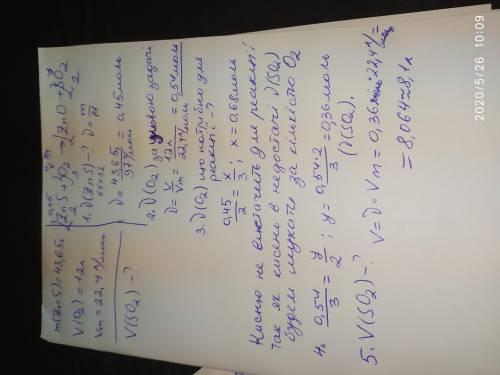 m(ZnS)=43,65г
V(O₂)=12л
Vm=22,4 л/моль
V(SO₂)-?
0,45 0,54
2ZnS+3O₂→2ZnO+2SO₂
2 3 2
1. ν(ZnS)-? ν=m/M
65+32
ν=43,65г/97г/моль=0,45моль
2. ν(O₂) за умовою задачі
ν=V/Vm=12л/22,4л/моль=0,54моль
3. ν(O₂) що потрібно для
реакції-?
0,45/2=x/3; x=0,68моль
Кисню не вистачить для реакції
Так як кисень в недостачі ν(SO₂)
будем шукати за кількістю O₂
4. 0,54/3=y/2; y=0,54·2/3=0,36моль
(ν(SO₂).
5. V(SO₂)-? V=ν·Vm=0,36моль·22,4л/моль=
=8,064≈8,1л
2020/5/26 10:09